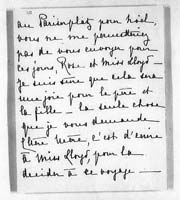 au Parisplatz pour Noël,
vous ne me permettrez
pas de vous envoyer pour
ces jours, Rose et Miss Lloyd –
je suis sûre que cela sera
une joie pour le père et
la fille – la seule chose
que je vous demande
chère Mme, c'est d'écrire
à Miss Lloyd, pour la
décider à ce voyage –